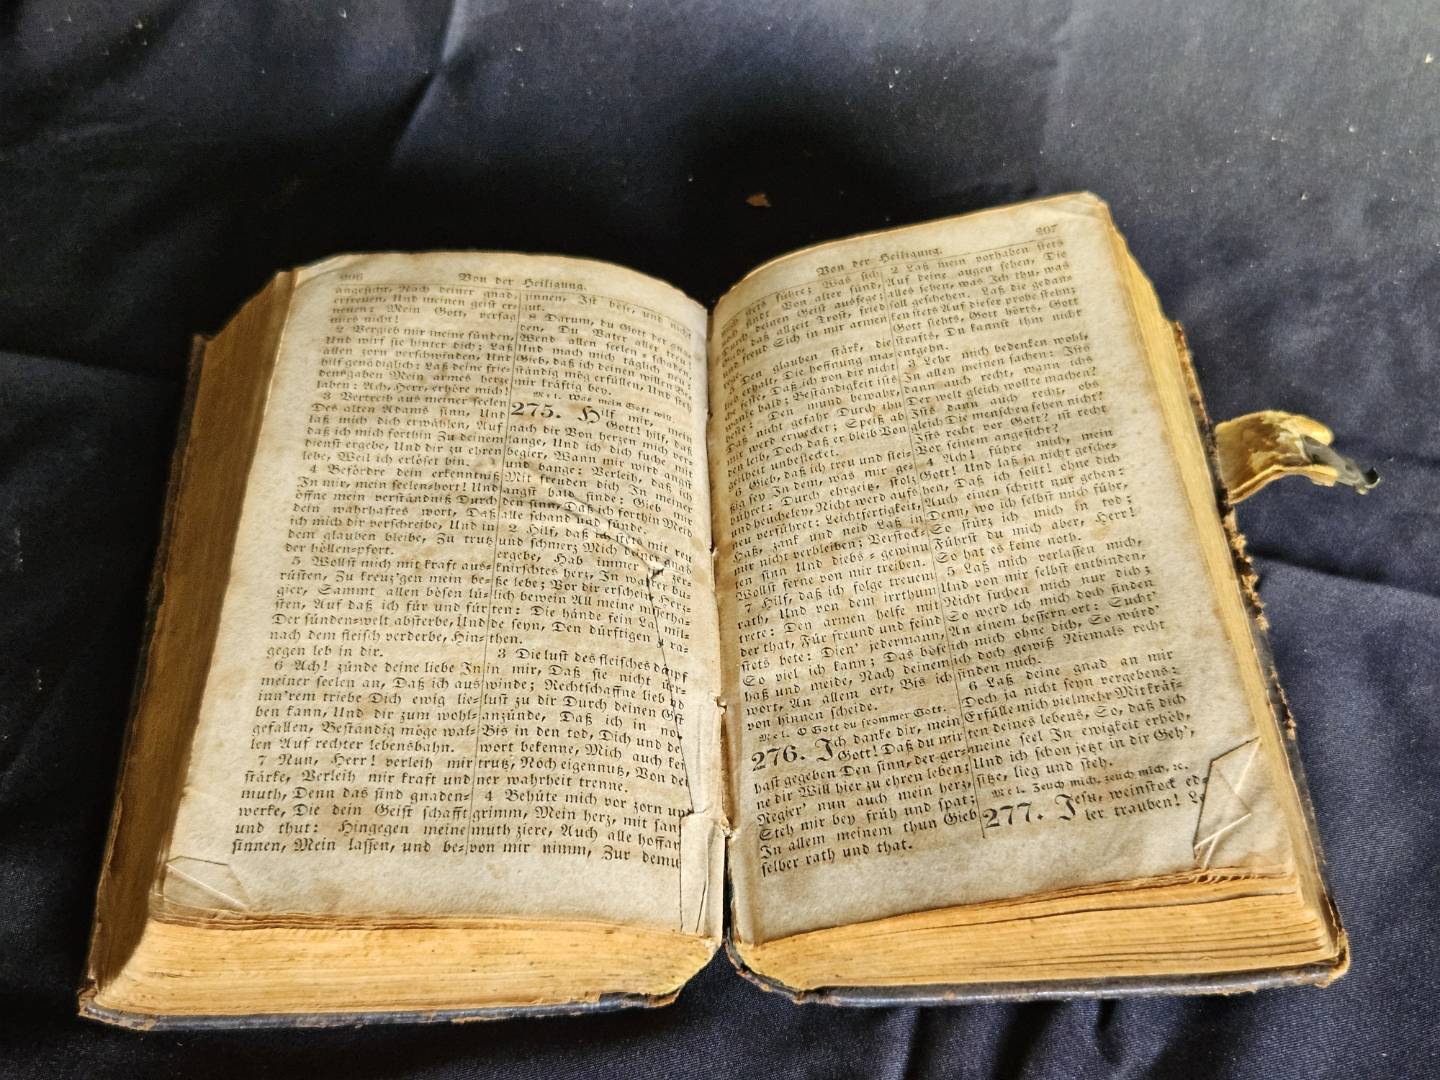 206 Von der Heiligung.
angesicht, Nach deiner gnad,
erfreuen, Und meinen geist er-
neuen: Mein Gott, versag
mirs nicht!
2 Vergieb mir meine sünden,
Und wirf sie hinter dich; Laß
allen zorn verschwinden, Und
hilf genädiglich: Laß deine frie-
densgaben Mein armes herze
laben: Ach, Herr, erhöre mich!
3 Vertreib aus meiner seelen
Des alten Adams sinn, Und
laß mich dich erwählen, Auf
daß ich mich forthin Zu deinem
dienst ergebe, Und dir zu ehren
lebe, Weil ich erlöset bin.
4 Befördre dein erkenntniß
In mir, mein seelen-hort! Und
öffne mein verständniß Durch
dein wahrhaftes wort, Daß
ich mich dir verschreibe, Und in
dem glauben bleibe, Zu trutz
der höllen-pfort.
5 Wollst mich mit kraft aus-
rüsten, Zu kreuz'gen mein be-
gier, Sammt allen bösen lü-
sten, Auf daß ich für und für
Der sünden-welt absterbe, Und
nach dem fleisch verderbe, Hin-
gegen leb in dir.
6 Ach! zünde deine liebe In
meiner seelen an, Daß ich aus
inn'rem triebe Dich ewig lie-
ben kann, Und dir zum wohl-
gefallen, Beständig möge wal-
len Auf rechter lebensbahn.
7 Nun, Herr! verleih mir
stärke, Verleih mir kraft und
muth, Denn das sind gnaden-
werke, Die dein Geist schafft
und thut: Hingegen meine
sinnen, Mein lassen, und be-
ginnen, Ist böse, und nicht
gut.
8 Darum, du Gott der gna-
den, Du Vater aller treu,
Wend allen seelen-schaden,
Und mach mich täglich neu;
Gieb, daß ich deinen willen Be-
ständig mög erfüllen, Und steh
mir kräftig bey.
Mel. Was mein Gott will
275. Hilf mir, mein
Gott! hilf, daß
nach dir Von herzen mich ver-
lange, Und ich dich suche mit
begier, Wann mir wird angst
und bange: Verleih, daß ich
Mit freuden dich In meiner
angst bald finde: Gieb mir
den sinn, Daß ich forthin Meid
alle schand und sünde.
2 Hilf, daß ich stets mit reu
und schmerz Mich deiner gnad
ergebe, Hab immer ein zer-
knirschtes herz, In wahrer bu-
ße lebe; Vor dir erschein Herz-
lich bewein All meine missetha-
ten: Die hände fein Laß mil-
de seyn, Den dürftigen zu ra-
then.
3 Die lust des fleisches dämpf
in mir, Daß sie nicht über-
winde; Rechtschaffne lieb und
lust zu dir Durch deinen Gst
anzünde, Daß ich in not
Bis in den tod, Dich und dein
wort bekenne, Mich auch kein
trutz, Noch eigennutz, Von dei-
ner wahrheit trenne.
4 Behüte mich vor zorn und
grimm, Mein herz, mit sanft-
muth ziere, Auch alle hoffart
von mir nimm, Zur demuth
Von der Heiligung. 207
mich stets führe; Was sich
noch findt Von alter sünd,
Durch deinen Geist ausfege;
Gieb, daß allzeit Trost, fried
und freud Sich in mir armen
rege.
5 Den glauben stärk, die
lieb erhalt, Die hoffnung ma-
che feste, Daß ich von dir nicht
wanke bald; Beständigkeit ists
beste: Den mund bewahr,
Daß nicht gefahr Durch ihn
mir werd erwecket; Speis ab
den leib, Doch daß er bleib Von
geilheit unbeflecket.
6 Gieb, daß ich treu und flei-
ßig sey In dem, was mir ge-
bühret: Durch ehrgeitz, stolz
und heucheley, Nicht werd aufs
neu verführet: Leichtfertigkeit,
Haß, zank und neid Laß in
mir nicht verbleiben; Verstock-
ten sinn Und diebs-gewinn
Wollst ferne von mir treiben.
7 Hilf, daß ich folge treuem
rath, Und von dem irrthum
trete: Den armen helfe mit
der that, Für freund und feind
stets bete: Dien' jedermann,
So viel ich kann; Das böse
haß und meide, Nach deinem
wort, An allem ort, Bis ich
von hinnen scheide.
Mel. O Gott du frommer Gott.
276. Ich danke dir, mein
Gott! Daß du mir
hast gegeben Den sinn, der ger-
ne dir Will hier zu ehren leben;
Regier' nun auch mein herz,
Steh mir bey früh und spat;
In allem meinem thun Gieb
selber rath und that.
2 Laß mein vorhaben stets
Auf deine augen sehen, Die
alles sehen, was ich thu, was
soll geschehen. Laß die gedan-
ken stets Auf dieser probe stehn:
Gott siehts, Gott hörts, Gott
strafts, Du kannst ihm nicht
entgehn.
3 Lehr mich bedenken wohl,
In allen meinen sachen: Ists
dann auch recht, wann ichs
Der welt gleich wollte machen?
Ists dann auch recht, obs
gleich Die menschen sehen nicht?
Ists recht vor Gott? ist recht
Vor seinem angesicht?
4 Ach! führe mich, mein
Gott! Und laß ja nicht gesche-
hen, Daß ich sollt! ohne dich
Auch einen schritt nur gehen:
Denn, wo ich selbst mich führ,
So stürz ich mich in tod;
Führst du mich aber, Herr!
So hat es keine noth.
5 Laß mich verlassen mich,
Und von mir selbst entbinden,
Nicht suchen mich nur dich;
So werd ich mich doch finden
An einem bessern ort: Sucht'
ich mich ohne dich, So würd'
ich doch gewiß Niemals recht
finden mich.
6 Laß deine gnad an mir
Doch ja nicht seyn vergebens:
Erfülle mich vielmehr Mit kräf-
ten deines lebens, So, daß dich
meine seel In ewigkeit erhöh,
Und ich schon jetzt in dir Geh',
sitze, lieg und steh.
Mel. Zeuch mich, zeuch mich, ec.
277. Jesu, weinstock ed-
ler trauben! Le